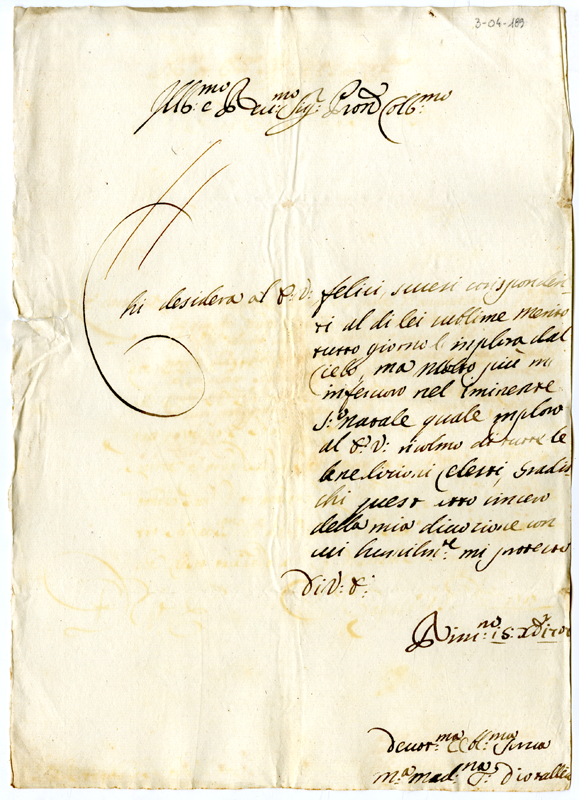 3-04-189
Ill.mo e R.eu.mo Sig.r Pron Coll.mo
Chi desidera al V: S: felici, sucesi corisponden-
ti al di lei sublime merito
tutto giorno l implora dal
Cielo, ma molto più mi
infercuro nel iminente
S.o natale quale imploro
al V: S: ricolmo di tutte le
bene dizioni Celesti, Gradis
chi quest atto sincero
della mia divozione con
cui humilm.te mi protesto
Di V: S:
Rimi.no 15: X.
Deuot.ma Obl.ma serua
M.a Mad.na